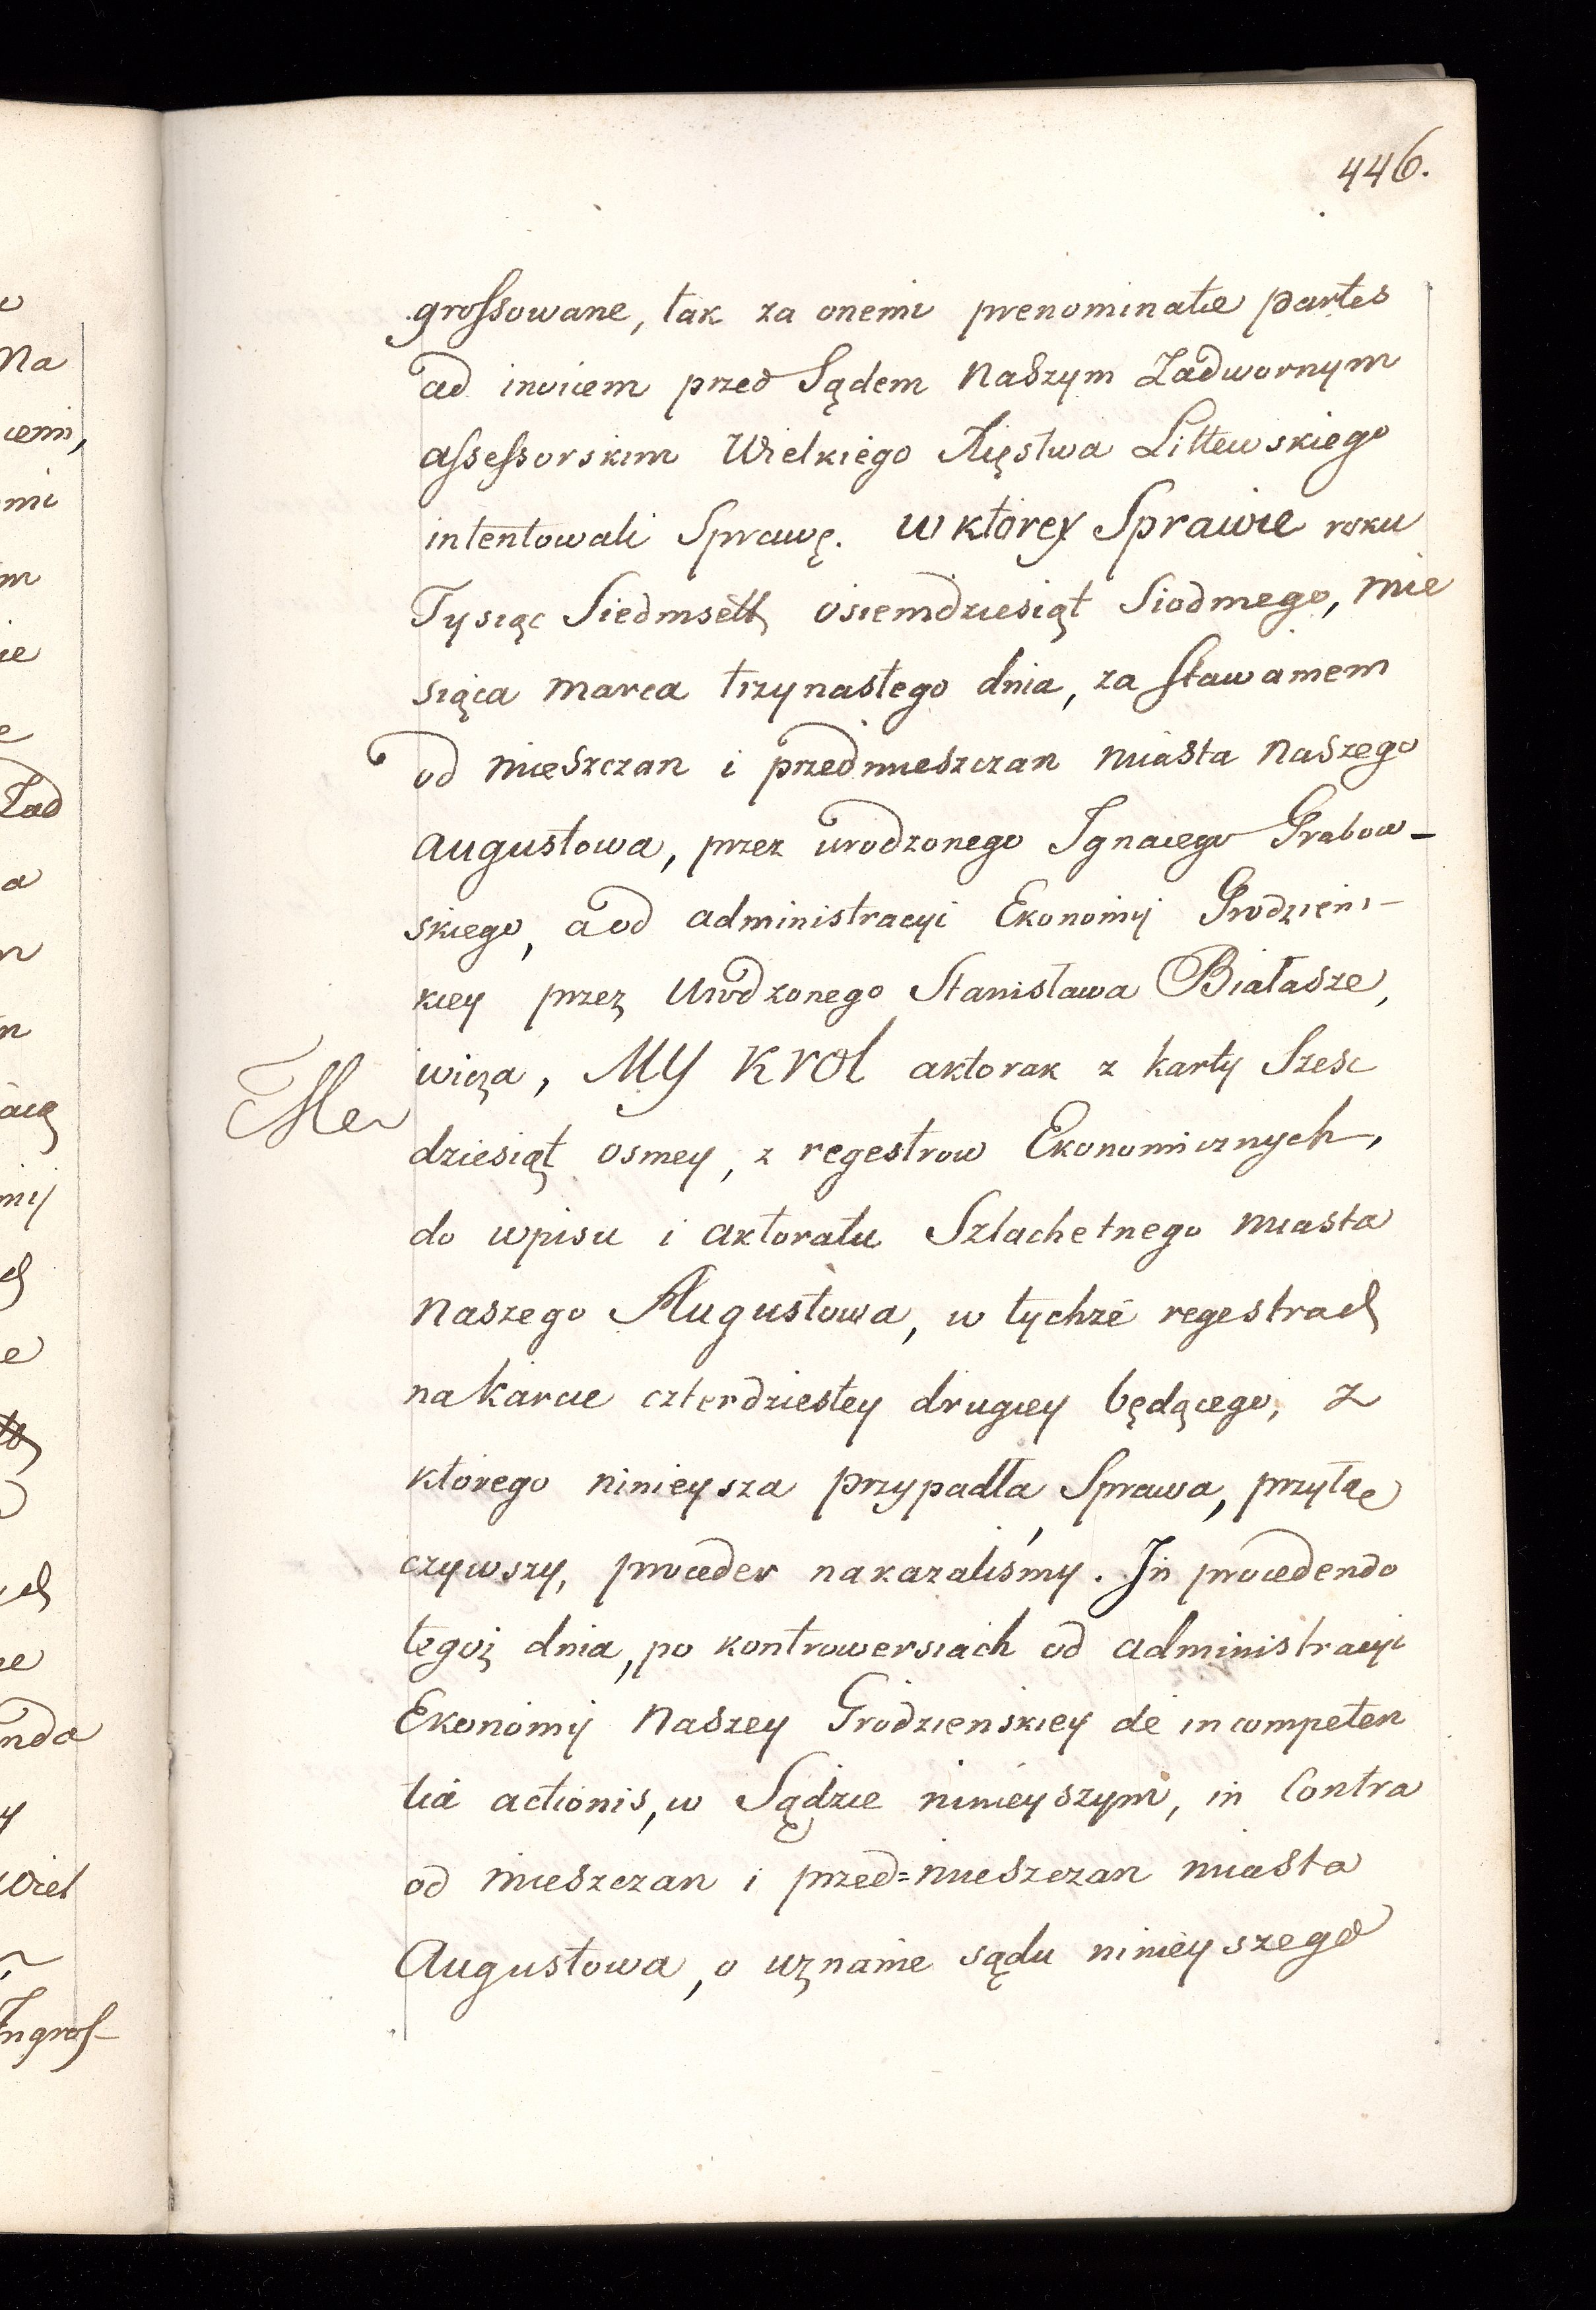 446.
grossowane, tak za onemi prenominatæ partes
ad invicem przed Sądem Naszym Zadwornym
assessorskim Wielkiego Xięstwa Littewskiego
intentowali Sprawę. w ktorey Sprawie roku
Tysiąc Siedmset osiemdziesiąt Siodmego, mie
siąca marca trzynastego dnia, za stawaniem
od mieszczan i przedmieszczan miasta Naszego
augustowa, przez urodzonego Ignacego Grabow-
skiego, a od administracyi Ekonomij Grodzien-
kiey przez Urodzonego Stanisława Białasze,
wicza, MY KROL aktorak z karty Szesc
dziesiąt osmey, z regestrow Ekonomicznych,
do wpisu i aktoratu Szlachetnego miasta
Naszego Augustowa, w tychże regestrach
na karcie czterdziestey drugiey będącego, z
ktorego ninieysza przypadła Sprawa, przyłą
czywszy, proceder nakazaliśmy. In procedendo
tegoż dnia, po kontrowersiach od administracyi
Ekonomij Naszey Grodzienskiey de incompeten
tia actionis, w Sądzie ninieyszym, in Contra
od mieszczan i przed=mieszczan miasta
Augustowa, o uznanie sądu ninieyszego
Na
mi
m
ie
Zad
a
e
nda
y
Wiel
Ingros-